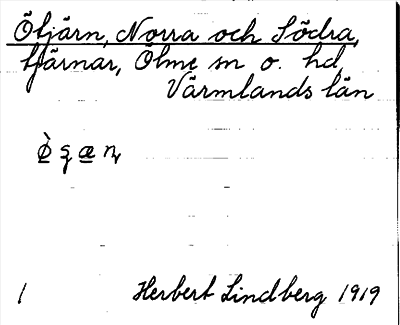 Öljärn, Norra och Södra,
tjärnar, Ölme sn o. hd,
Värmlands län
1 Herbert Lindberg 1919